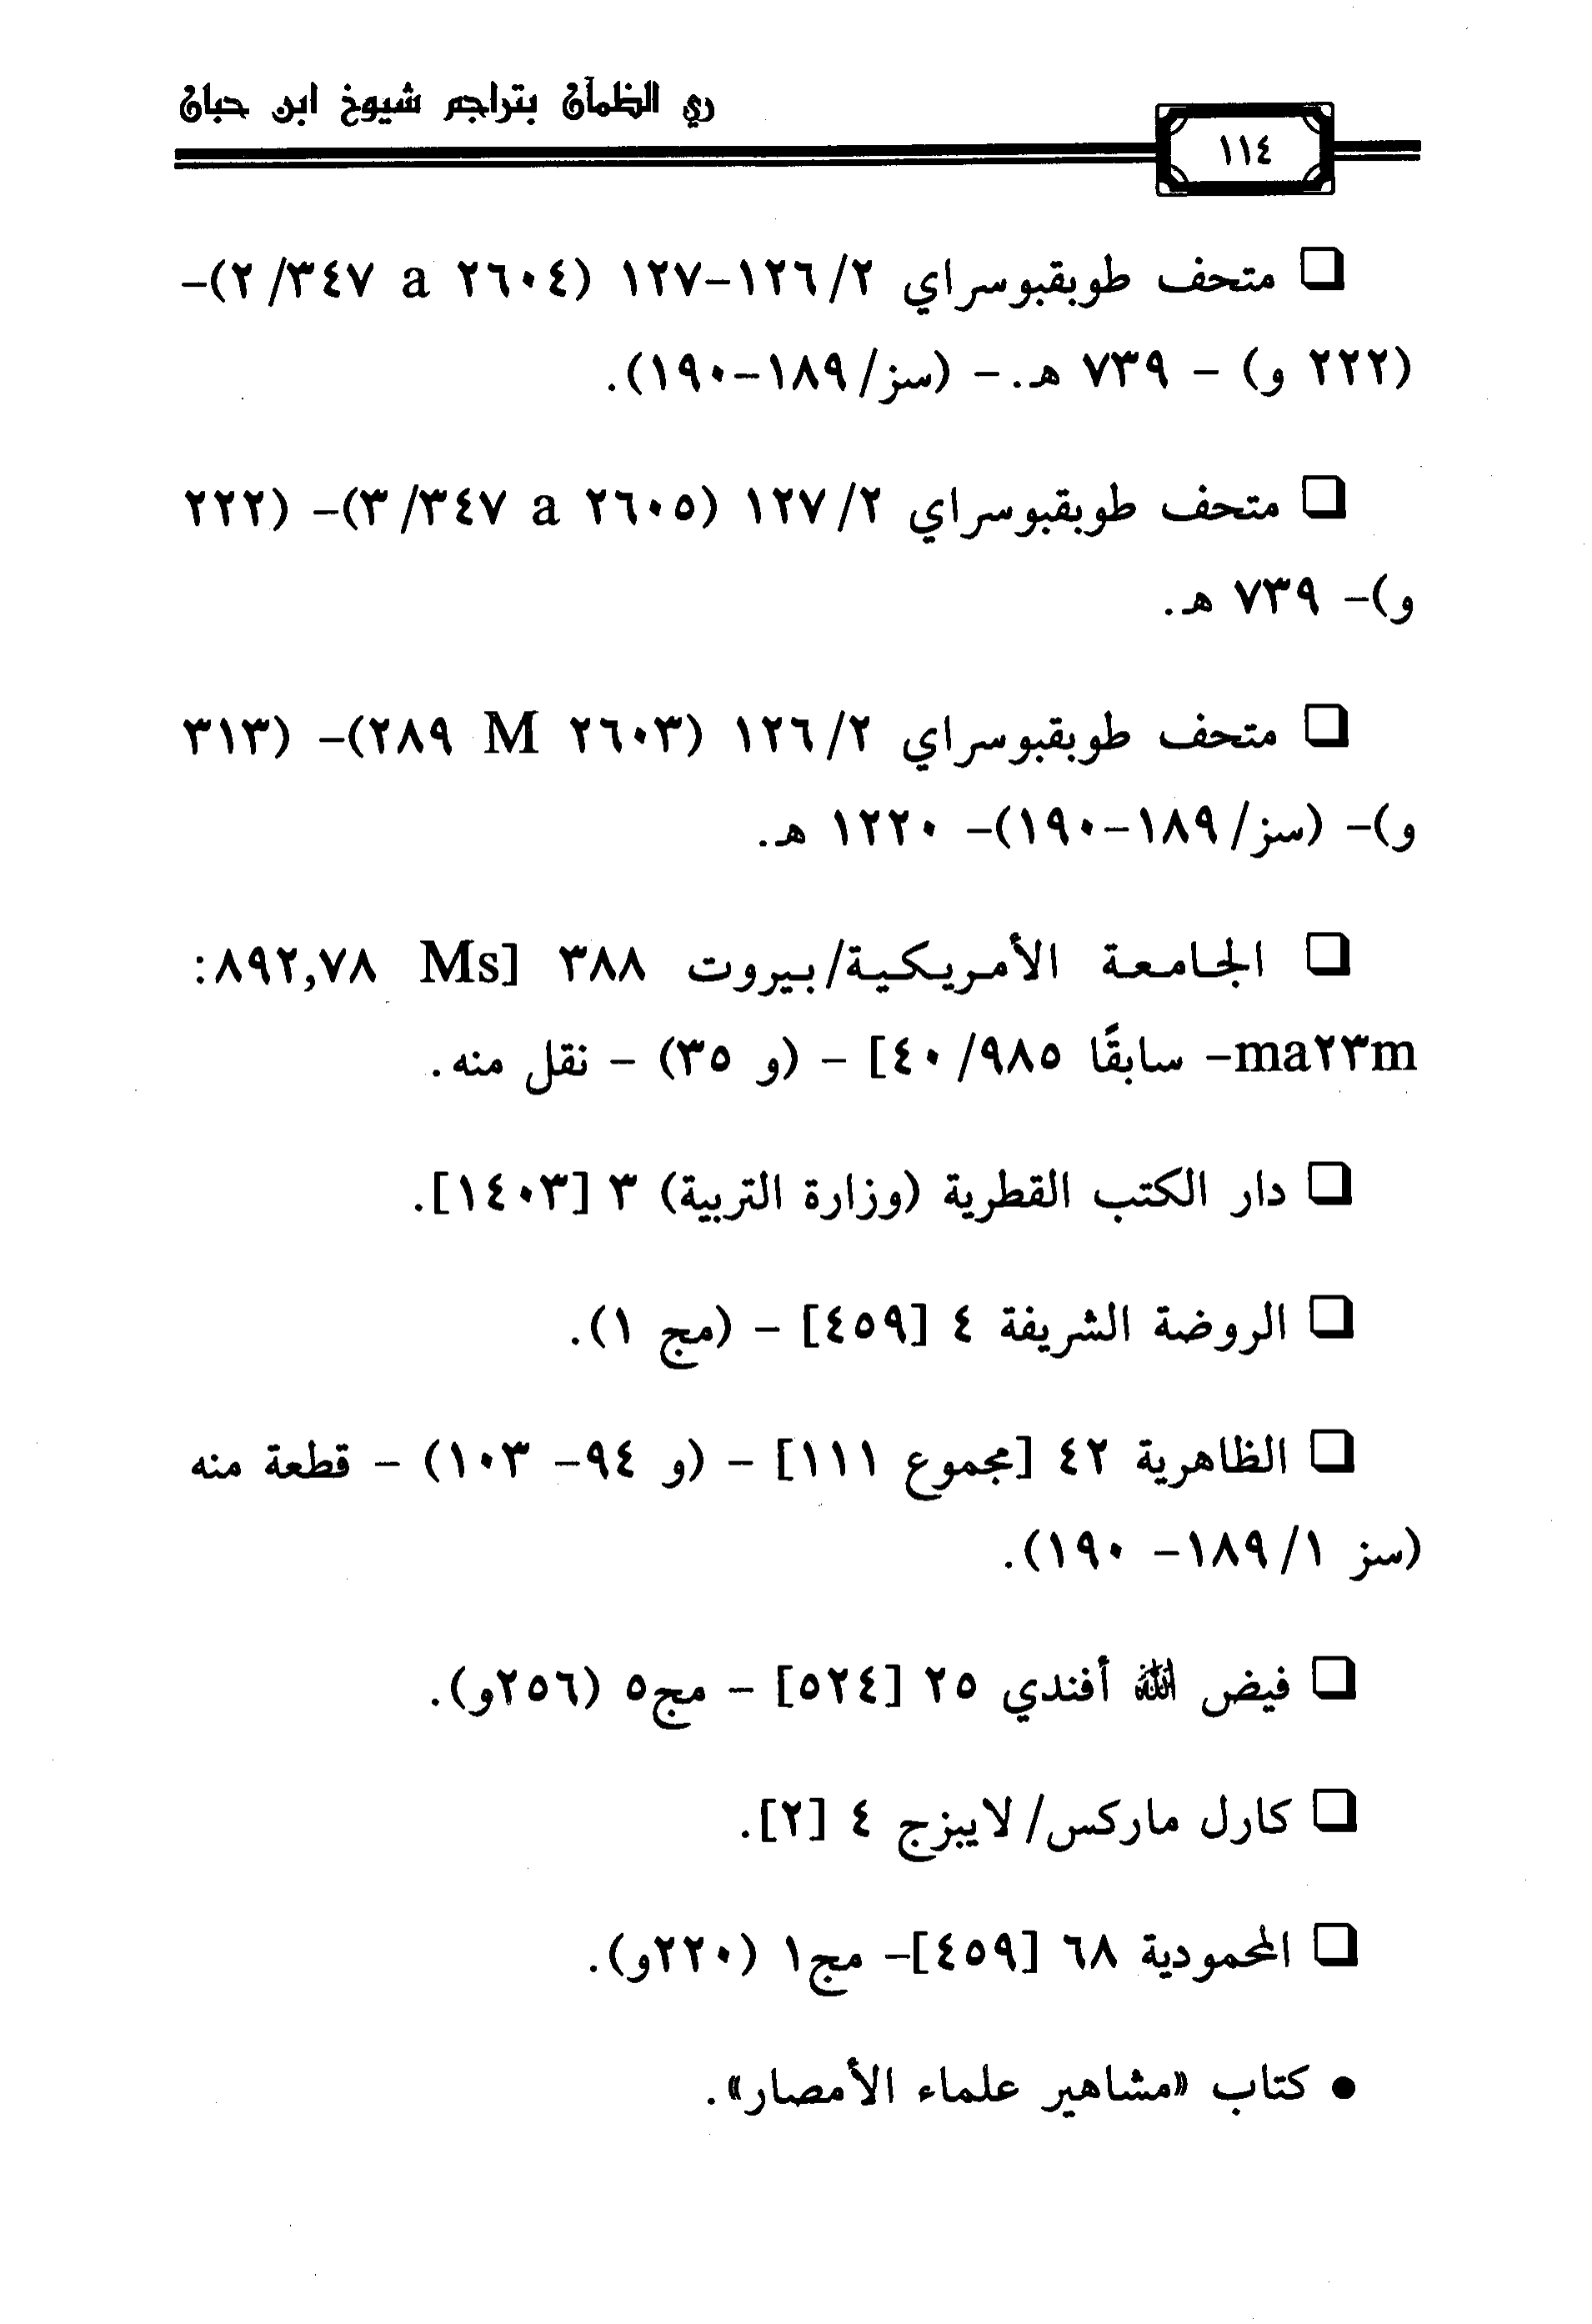 ري الظمآن بتراجم شيوخ ابن حبان
١١٤
❏ متحف طوبقبوسراي ١٢٦/٢-١٢٧ (٢٦٠٤ a ٢/٣٤٧)-
(٢٢٢ و) - ٧٣٩ هـ. - (سز/١٨٩-١٩٠).
❏ متحف طوبقبوسراي ١٢٧/٢ (٢٦٠٥ a ٣/٣٤٧)- (٢٢٢
و)- ٧٣٩ هـ.
❏ متحف طوبقبوسراي ١٢٦/٢ (٢٦٠٣ M ٢٨٩)- (٣١٣
و)- (سز/١٨٩-١٩٠)- ١٢٢٠ هـ.
❏ الجامعة الأمريكية/بيروت ٣٨٨ [Ms ٨٩٢,٧٨:
ma٢٣m- سابقًا ٤٠/٩٨٥] - (و ٣٥) - نقل منه.
❏ دار الكتب القطرية (وزارة التربية) ٣ [١٤٠٣].
❏ الروضة الشريفة ٤ [٤٥٩] - (مج ١).
❏ الظاهرية ٤٢ [مجموع ١١١] - (و ٩٤- ١٠٣) - قطعة منه
(سز ١٨٩/١- ١٩٠).
❏ فيض الله أفندي ٢٥ [٥٢٤] - مج٥ (٢٥٦و).
❏ كارل ماركس/لايبزج ٤ [٢].
❏ المحمودية ٦٨ [٤٥٩]- مج١ (٢٢٠و).
● كتاب «مشاهير علماء الأمصار».